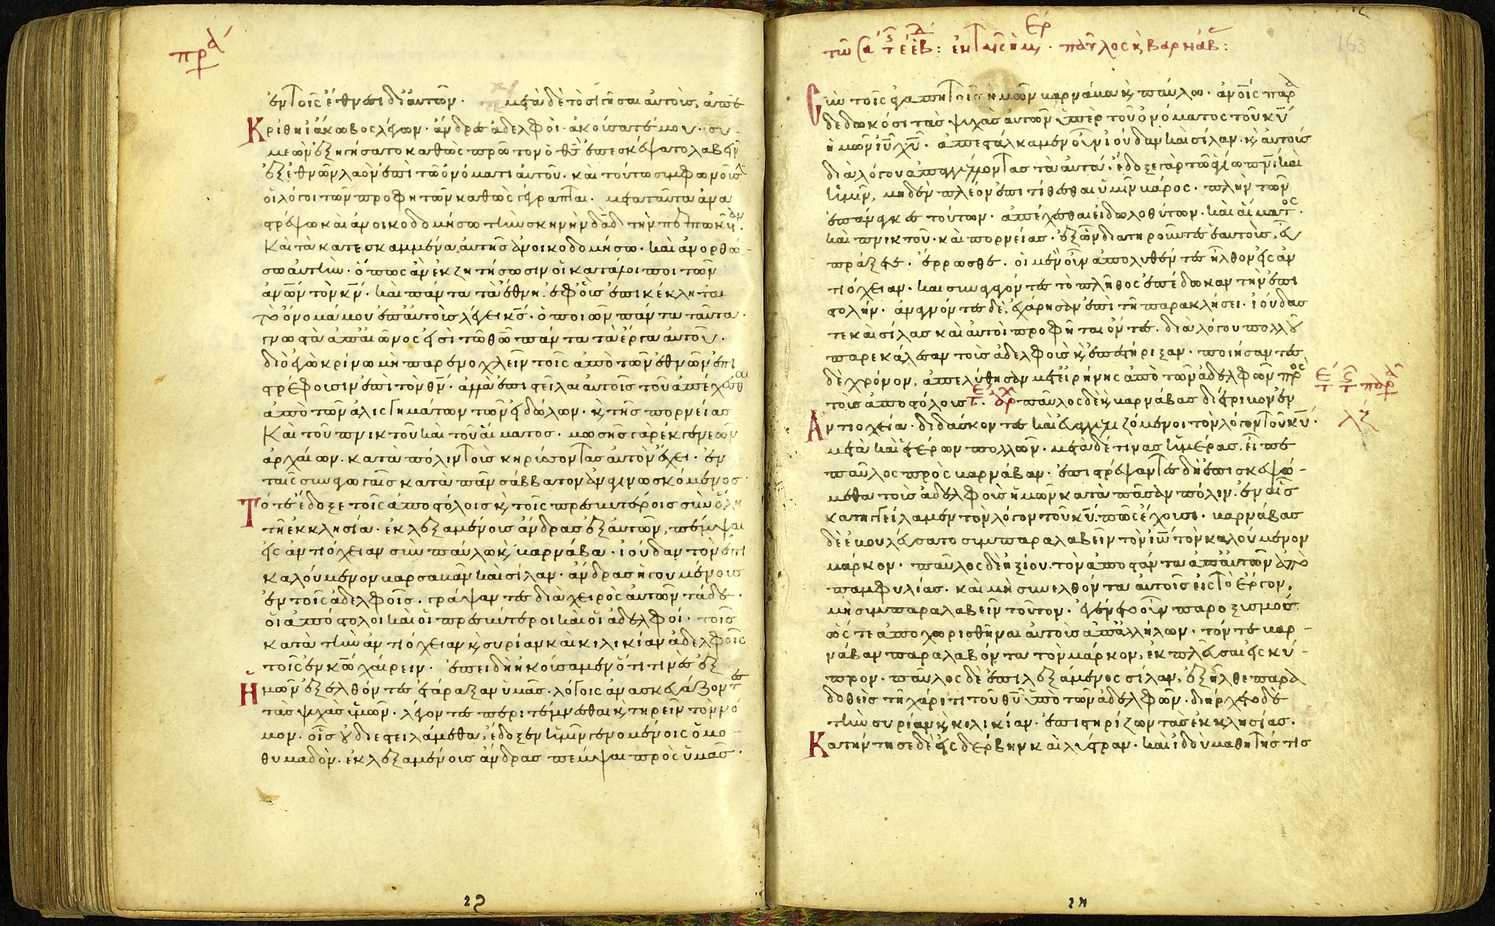 πρ
ἐν τοῖς ἔθνεσι δι' αὐτῶν· μετὰ δὲ τὸ σιγῆσαι αὐτοὺς, ἀπε
κρίθη ἰάκωβος λέγων· ἄνδρες ἀδελφοὶ· ἀκούσατέ μου· συ
μεὼν ἐξηγήσατο καθὼς πρῶτον ὁ θς ἐπεσκέψατο λαβεῖν
ἐξ ἐθνῶν λαὸν ἐπὶ τῶ ὀνόματι αὐτοῦ· καὶ τούτω συμφωνοῦσιν
οἱ λόγοι τῶν προφητῶν καθὼς γέγραπται· μετὰ ταῦτα ἀνα
στρέψω καὶ ἀνοικοδομήσω τὴν σκηνὴν δαδ τὴν πεπτωκυῖαν·
καὶ τὰ κατεσκαμμένα αὐτῆς ἀνοικοδομήσω· καὶ ἀνορθώ
σω αὐτὴν· ὅπως ἂν ἐκζητήσωσιν οἱ κατάλοιποι τῶν
ἀνων τὸν κν· καὶ πάντα τὰ ἔθνη ἐφ' οὓς ἐπικέκληται
τὸ ὄνομά μου ἐπ' αὐτοὺς λέγει κς· ὁ ποιῶν πάντα ταῦτα·
γνωστὰ ἀπ' αἰῶνος ἐστὶ τῶ θω πάντα τὰ ἔργα αὐτοῦ·
διὸ ἐγὼ κρίνω μὴ παρενοχλεῖν τοῖς ἀπὸ τῶν ἐθνῶν ἐπι
στρέφουσιν ἐπὶ τὸν θν· ἀλλὰ ἐπιστεῖλαι αὐτοῖς τοῦ ἀπέχεσθαι
ἀπὸ τῶν ἀλισγημάτων τῶν εἰδώλων· κ τῆς πορνείας
καὶ τοῦ πνικτοῦ καὶ τοῦ αἵματος· μωσῆς γὰρ ἐκ γενεῶν
ἀρχαίων· κατὰ πόλιν τοὺς κηρύσσοντας αὐτὸν ἔχει· ἐν
ταῖς συναγωγαῖς κατὰ πᾶν σάββατον ἀναγινωσκόμενος·
Τότε ἔδοξε τοῖς ἀποστόλοις κ τοῖς πρεσβυτέροις σὺν ὅλη
τῆ ἐκκλησία· ἐκλεξαμένους ἄνδρας ἐξ αὐτῶν, πέμψαι
εἰς ἀντιόχειαν σὺν παύλω κ βαρνάβα· ἰούδαν τὸν ἐπι
καλούμενον βαρσαβᾶν καὶ σίλαν· ἄνδρας ἡγουμένους
ἐν τοῖς ἀδελφοῖς· γράψαντες διὰ χειρὸς αὐτῶν τάδε·
οἱ ἀπόστολοι καὶ οἱ πρεσβύτεροι καὶ οἱ ἀδελφοί· τοῖς
κατὰ τὴν ἀντιόχειαν κ συρίαν καὶ κιλικίαν ἀδελφοῖς
τοῖς ἐν κω χαίρειν· ἐπειδὴ ἠκούσαμεν ὅτι τινὲς ἐξ
ἡμῶν ἐξελθόντες ἐτάραξαν ὑμᾶς· λόγοις ἀνασκευάζοντες
τὰς ψχὰς ὑμῶν· λέγοντες περιτέμνεσθαι κ τηρεῖν τὸν νό
μον· οἷς οὐ διεστειλάμεθα, ἔδοξεν ἡμῖν γενομένοις ὁμο
θυμαδὸν· ἐκλεξαμένους ἄνδρας πέμψαι πρὸς ὑμᾶς·
παῦλος κ βαρνάβ:
Σὺν τοῖς ἀγαπητοῖς ἡμῶν βαρνάβα κ παύλω· ἀνοις παρα
δεδωκόσι τὰς ψχὰς αὐτῶν ὑπὲρ τοῦ ὀνόματος τοῦ κυ
ἡμῶν ιυ χυ· ἀπεστάλκαμεν οὖν ἰούδαν καὶ σίλαν· κ αὐτοὺς
διὰ λόγου ἀπαγγέλλοντας τὰ αὐτά· ἔδοξε γὰρ τῶ ἁγίω πνι καὶ
ἡμῖν, μηδὲν πλέον ἐπιτίθεσθαι ὑμῖν βάρος· πλὴν τῶν
ἐπάναγκες τούτων· ἀπέχεσθαι εἰδωλοθύτων· καὶ αἵματος·
καὶ πνικτοῦ· καὶ πορνείας· ἐξ ὧν διατηροῦντες ἑαυτοὺς, εὖ
πράξετε· ἔρρωσθε· οἱ μὲν οὖν ἀπολυθέντες ἦλθον εἰς ἀν
τιόχειαν· καὶ συναγαγόντες τὸ πλῆθος ἐπέδωκαν τὴν ἐπι
στολήν· ἀναγνόντες δὲ, ἐχάρησαν ἐπὶ τῆ παρακλήσει· ἰούδας
τε καὶ σίλας καὶ αὐτοὶ προφῆται ὄντες· διὰ λόγου πολλοῦ
παρεκάλεσαν τοὺς ἀδελφοὺς κ ἐπεστήριξαν· ποιήσαντες
δὲ χρόνον, ἀπελύθησαν μετ' εἰρήνης ἀπὸ τῶν ἀδελφῶν πρὸς
τοὺς ἀποστόλους· παῦλος δὲ κ βαρνάβας διέτριβον ἐν
Ἀντιοχεία· διδάσκοντες καὶ εὐαγγελιζόμενοι τὸν λόγον τοῦ κυ·
μετὰ καὶ ἑτέρων πολλῶν· μετὰ δέ τινας ἡμέρας, εἶπε
παῦλος πρὸς βαρνάβαν· ἐπιστρέψαντες δὴ ἐπισκεψώ
μεθα τοὺς ἀδελφοὺς ἡμῶν κατὰ πᾶσαν πόλιν· ἐν αἷς
κατηγγείλαμεν τὸν λόγον τοῦ κυ· πῶς ἔχουσι· βαρνάβας
δὲ ἐβουλεύσατο συμπαραλαβεῖν τὸν ἰω τὸν καλούμενον
μάρκον· παῦλος δὲ ἠξίου, τὸν ἀποστάντα ἀπ' αὐτῶν ἀπὸ
παμφυλίας· καὶ μὴ συνελθόντα αὐτοῖς εἰς τὸ ἔργον,
μὴ συμπαραλαβεῖν τοῦτον· ἐγένετο οὖν παροξυσμὸς
ὥστε ἀποχωρισθῆναι αὐτοὺς ἀπ' ἀλλήλων· τόν τε βαρ
νάβαν παραλαβόντα τὸν μάρκον, ἐκπλεῦσαι εἰς κύ
προν· παῦλος δὲ ἐπιλεξάμενος σίλαν, ἐξῆλθε παρα
δοθεὶς τῆ χάριτι τοῦ θυ ὑπὸ τῶν ἀδελφῶν· διήρχετο δὲ
τὴν συρίαν κ κιλικίαν· ἐπιστηρίζων τὰς ἐκκλησίας·
Κατήντησε δὲ εἰς δέρβην καὶ λύστραν· καὶ ἰδοὺ μαθητής τις